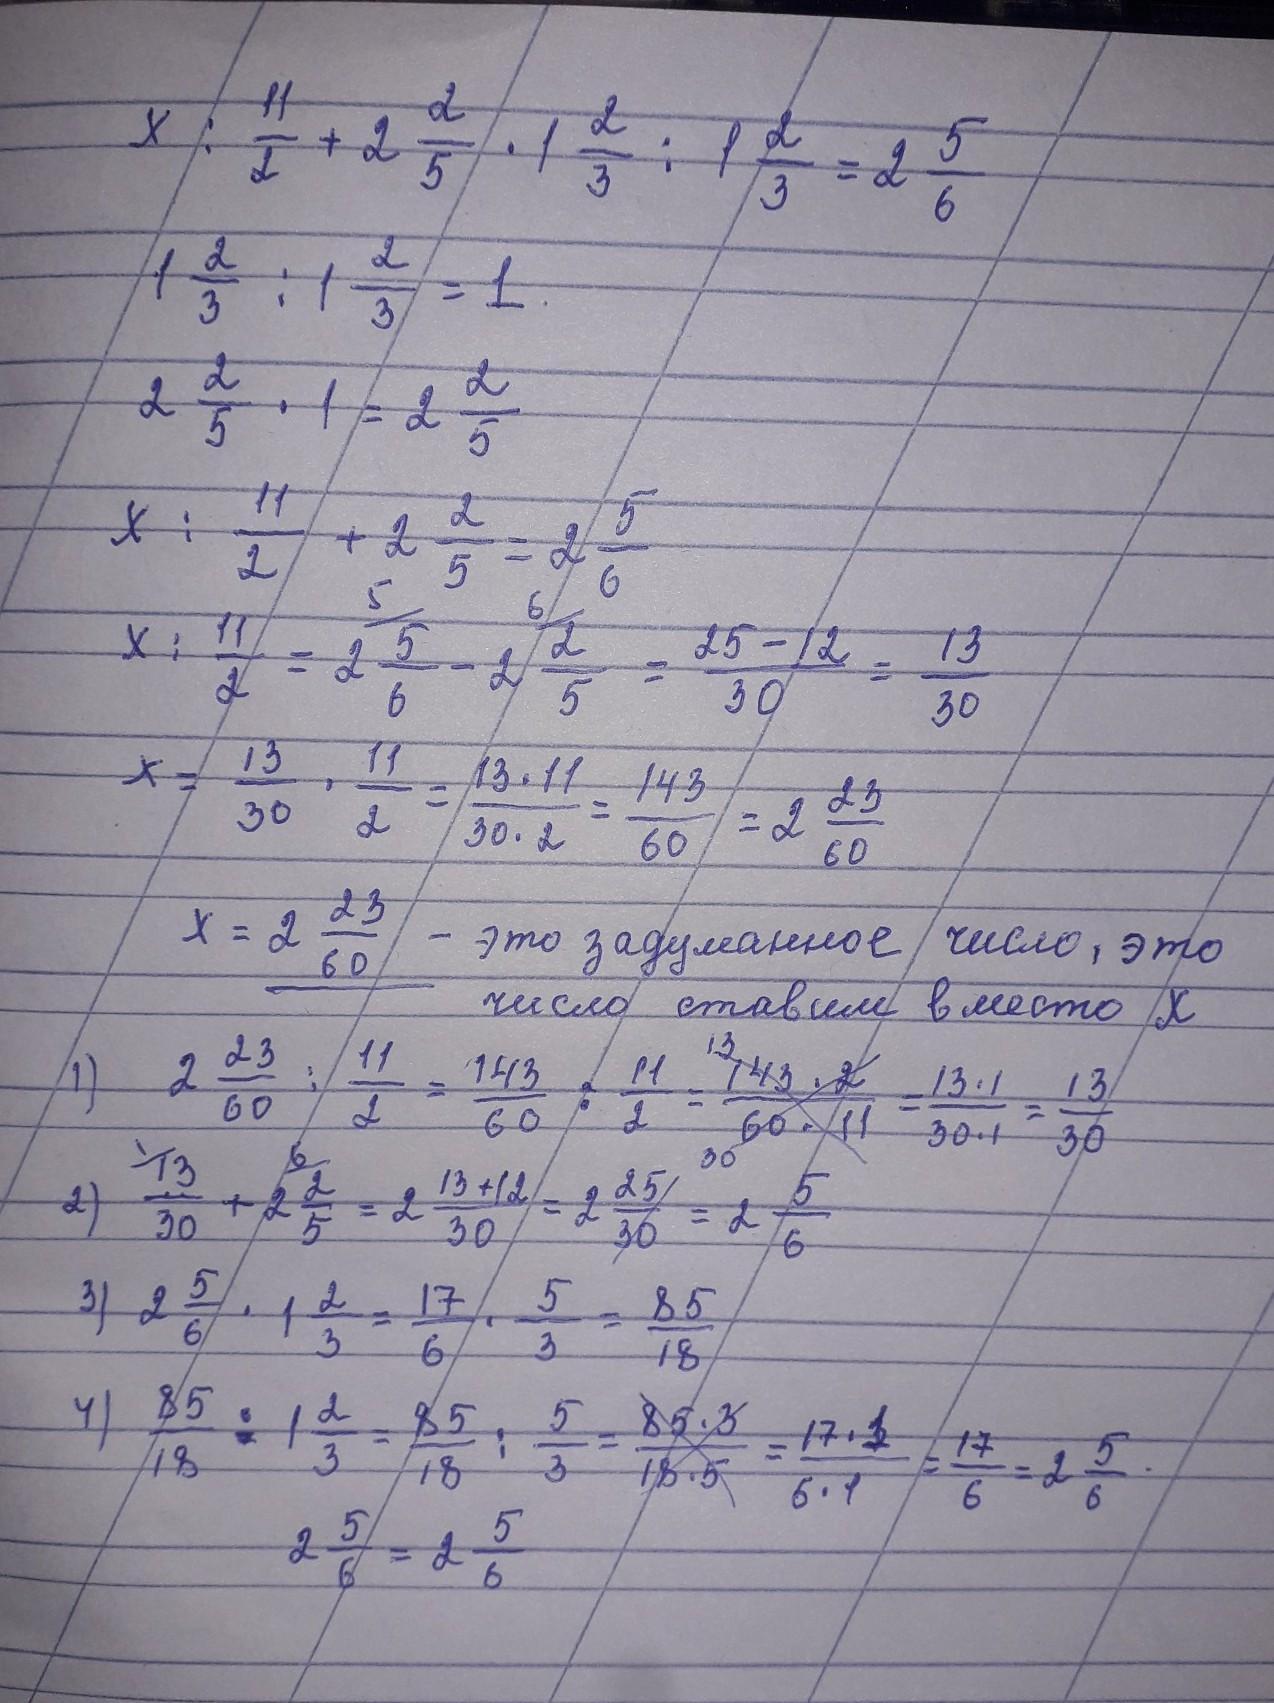 x : 11/2 + 2 2/5 · 1 2/3 : 1 2/3 = 2 5/6
1 2/3 : 1 2/3 = 1.
2 2/5 · 1 = 2 2/5
x : 11/2 + 2 2/5 = 2 5/6
x : 11/2 = 2 5/6 (5 − 2 2/5 (6 = (25 − 12)/30 = 13/30
x = 13/30 · 11/2 = (13 · 11)/(30 · 2) = 143/60 = 2 23/60
x = 2 23/60 – это задуманное число, это
число ставим вместо x
1) 2 23/60 : 11/2 = 143/60 : 11/2 = (143 · 2)/(60 · 11) 13 30 = (13 · 1)/(30 · 1) = 13/30
2) 13/30 (1 + 2 2/5 (6 = 2 (13 + 12)/30 = 2 25/30 = 2 5/6
3) 2 5/6 · 1 2/3 = 17/6 · 5/3 = 85/18
4) 85/18 : 1 2/3 = 85/18 : 5/3 = (85 · 3)/(18 · 5) = (17 · 1)/(6 · 1) = 17/6 = 2 5/6.
2 5/6 = 2 5/6